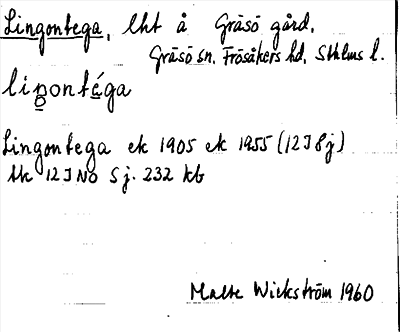 Lingontega, lht å Gräsö gård,
Gräsö sn. Frösåkers hd, Sthlms l.
liṉontéga
Lingontega ek 1905 ek 1955 (12I 8j)
tk 12I NO Sj. 232 kb
Malte Wickström 1960